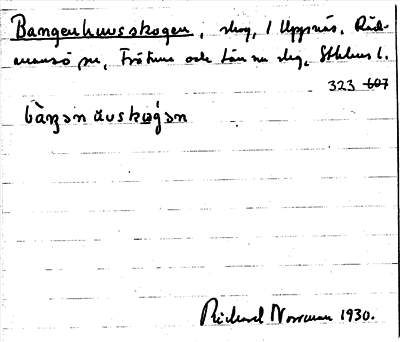 Bangenhuvsskogen, skog, 1 Uppnäs, Råd-
mansö sn, Frötuna och Länna slg, Sthlms l.
323 607
Richard Norrman 1930.